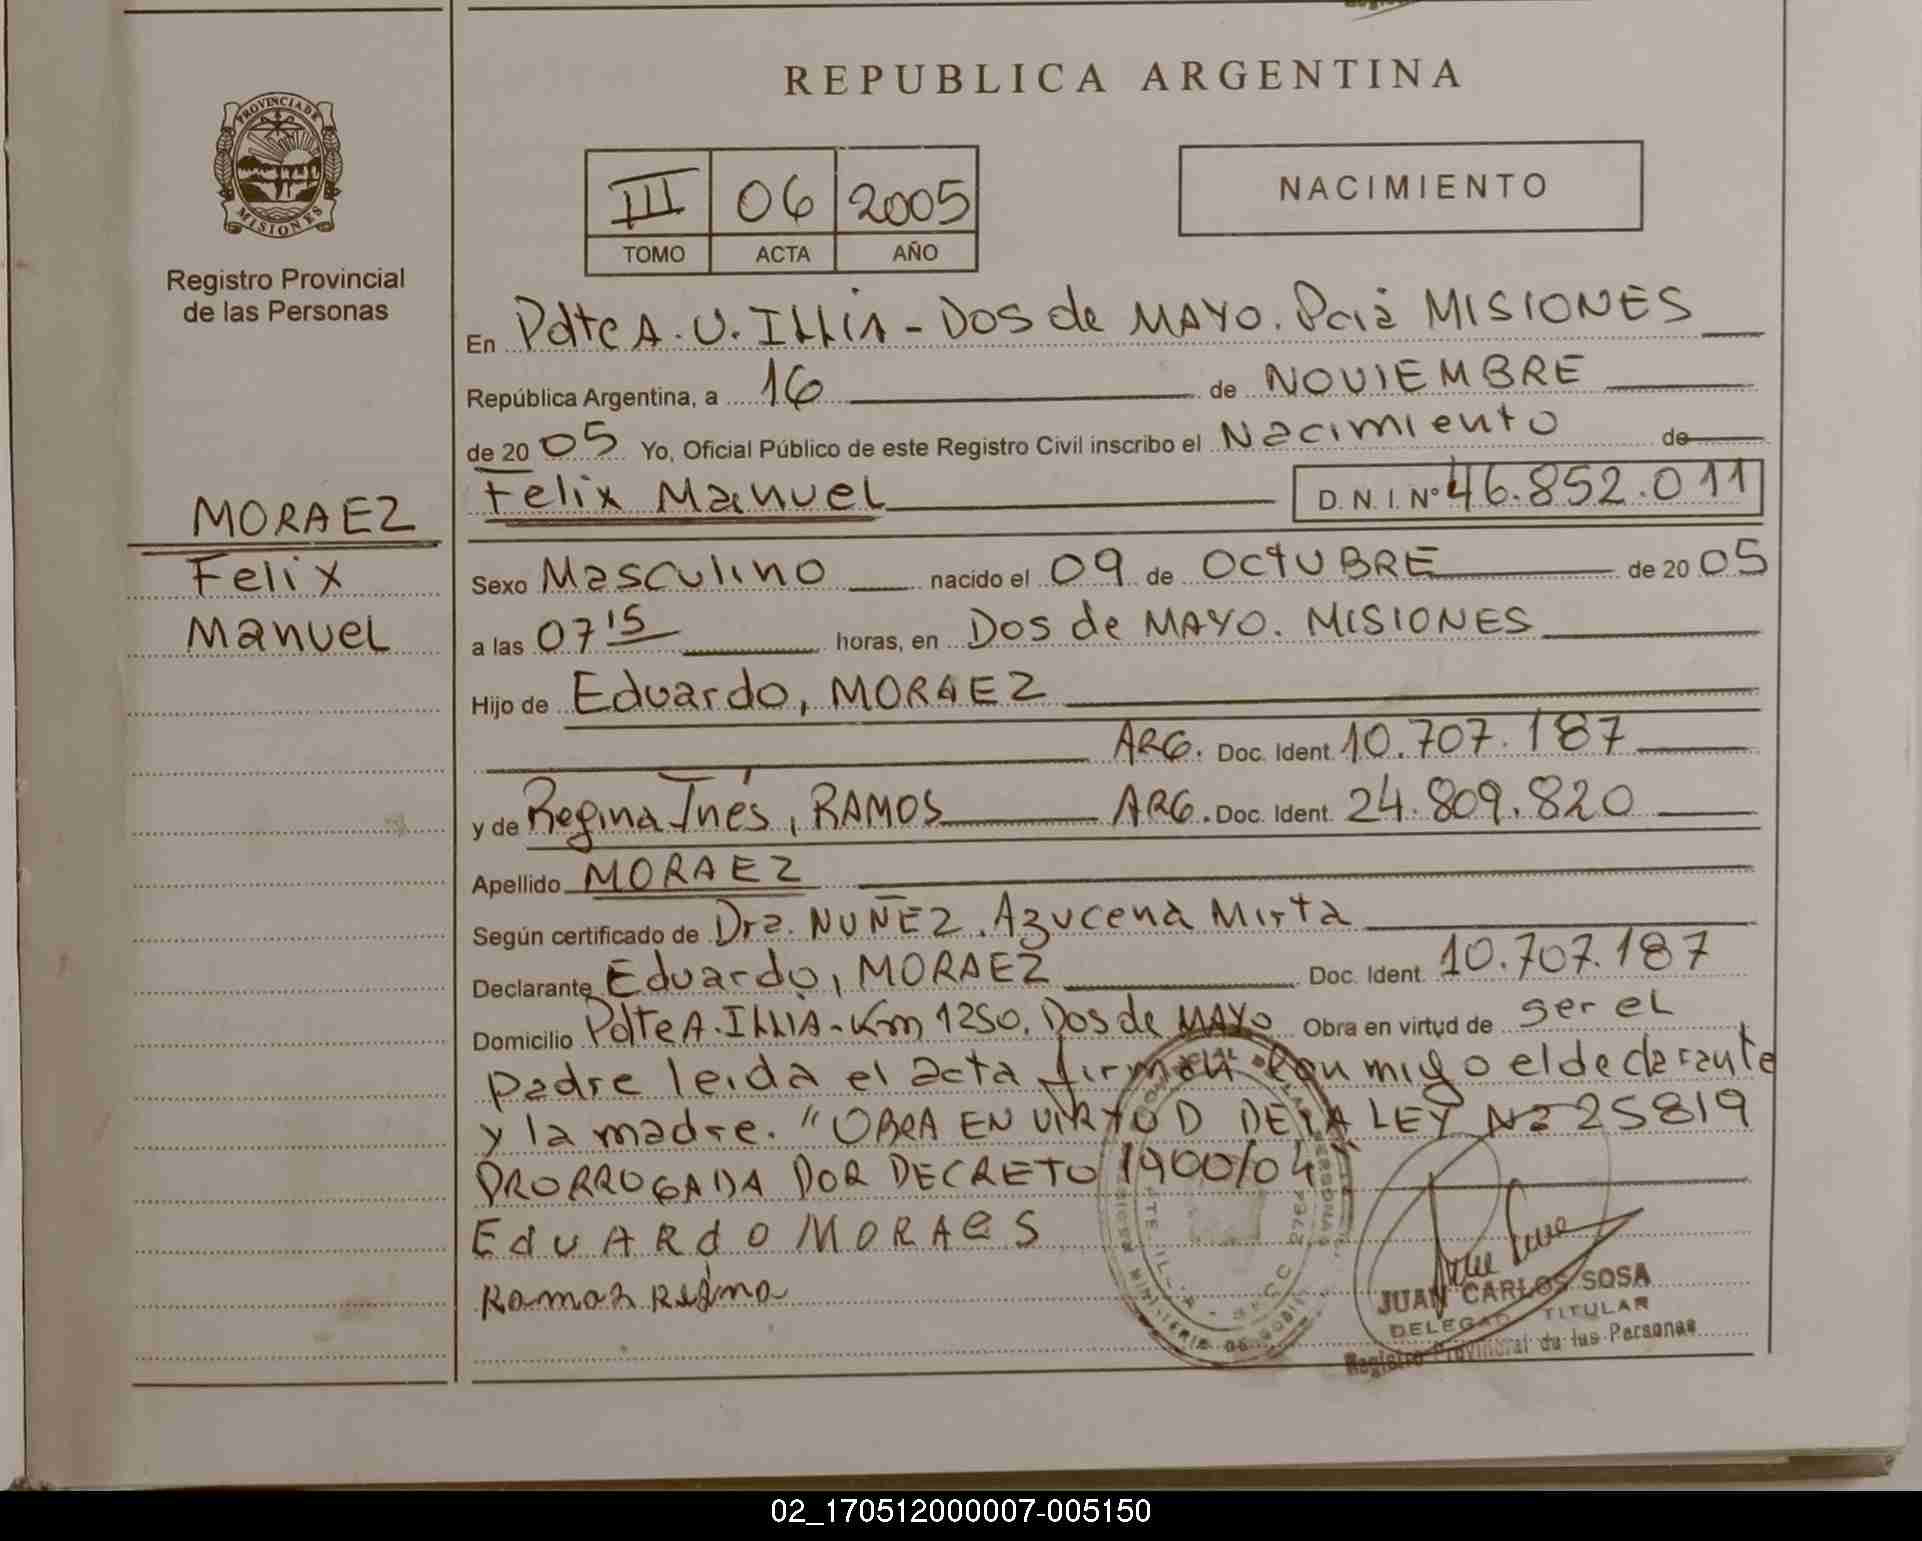 REPUBLICA ARGENTINA
PROVINCIA DE
MISIONES
Registro Provincial
de las Personas
III 06 2005
TOMO ACTA AÑO
NACIMIENTO
En Pdte A. U. ILLIA - DOS de MAYO. MISIONES
República Argentina, a 16 de NOVIEMBRE
de 20 05 Yo, Oficial Público de este Registro Civil inscribo el Nacimiento de
Felix Manuel D. N. I. Nº 46.852.011
MORAEZ
Felix
Manuel
Sexo Masculino nacido el 09 de OCTUBRE de 20 05
a las 07 15 horas, en DOS de MAYO. MISIONES
Hijo de Eduardo, MORAEZ
ARG. Doc. Ident. 10.707.187
y de Regina Inés, RAMOS ARG. Doc. Ident. 24.809.820
Apellido MORAEZ
Según certificado de Dra. NUÑEZ. Azucena Mirta
Declarante Eduardo, MORAEZ Doc. Ident. 10.707.187
Domicilio Pdte A. ILLIA - Km 1250. Dos de MAYO Obra en virtud de ser el
padre leida el acta firman conmigo el declarante
y la madre. "OBRA EN VIRTUD DE LA LEY Nº 25819
PRORROGADA POR DECRETO 1900/04"
EdUARdO MORAeS
Ramos Regina
JUAN CARLOS SOSA
DELEGADO TITULAR
Registro Provincial de las Personas
02_170512000007-005150